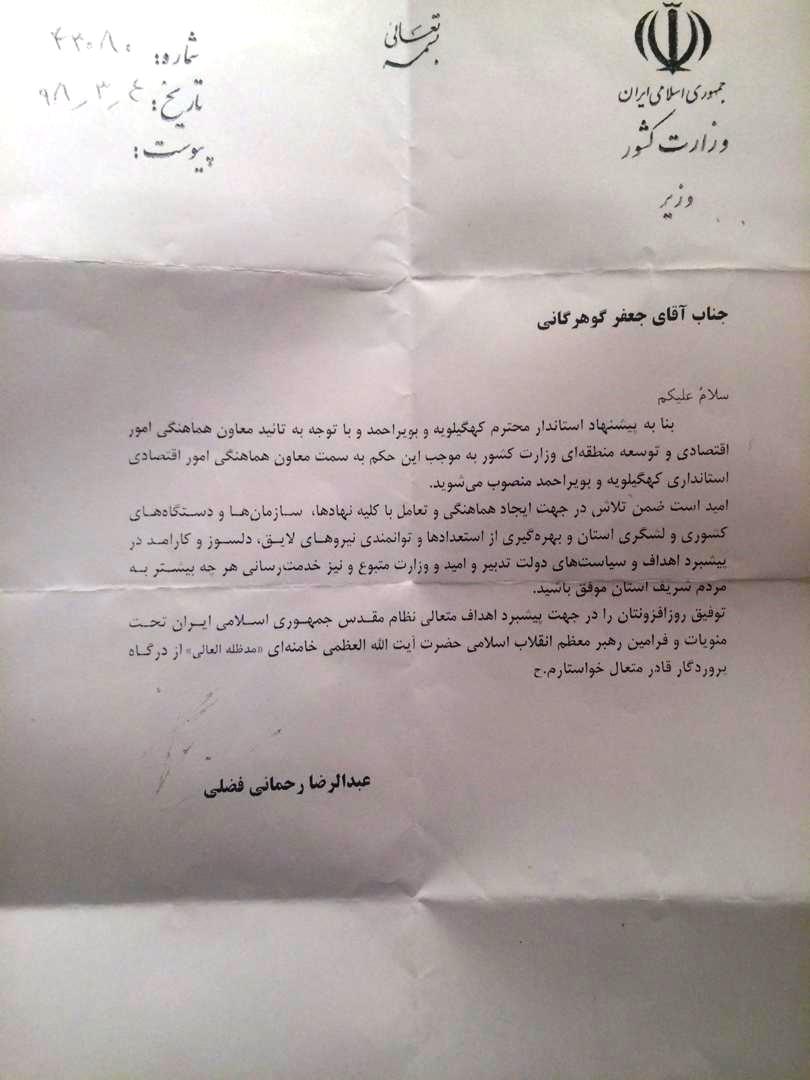 بسمه تعالی
جمهوری اسلامی ایران
وزارت کشور
وزیر
شماره: ۴۳۰۸۰
تاریخ: ۹۸٫۳٫٤
پیوست:
جناب آقای جعفر گوهرگانی
سلامُ علیکم
بنا به پیشنهاد استاندار محترم کهگیلویه و بویراحمد و با توجه به تائید معاون هماهنگی امور
اقتصادی و توسعه منطقه‌ای وزارت کشور به موجب این حکم به سمت معاون هماهنگی امور اقتصادی
استانداری کهگیلویه و بویراحمد منصوب می‌شوید.
امید است ضمن تلاش در جهت ایجاد هماهنگی و تعامل با کلیه نهادها، سازمان‌ها و دستگاه‌های
کشوری و لشگری استان و بهره‌گیری از استعدادها و توانمندی نیروهای لایق، دلسوز و کارامد در
پیشبرد اهداف و سیاست‌های دولت تدبیر و امید و وزارت متبوع و نیز خدمت‌رسانی هر چه بیشتر به
مردم شریف استان موفق باشید.
توفیق روزافزونتان را در جهت پیشبرد اهداف متعالی نظام مقدس جمهوری اسلامی ایران تحت
منویات و فرامین رهبر معظم انقلاب اسلامی حضرت آیت الله العظمی خامنه‌ای «مدظله العالی» از درگاه
پروردگار قادر متعال خواستارم.ح
عبدالرضا رحمانی فضلی